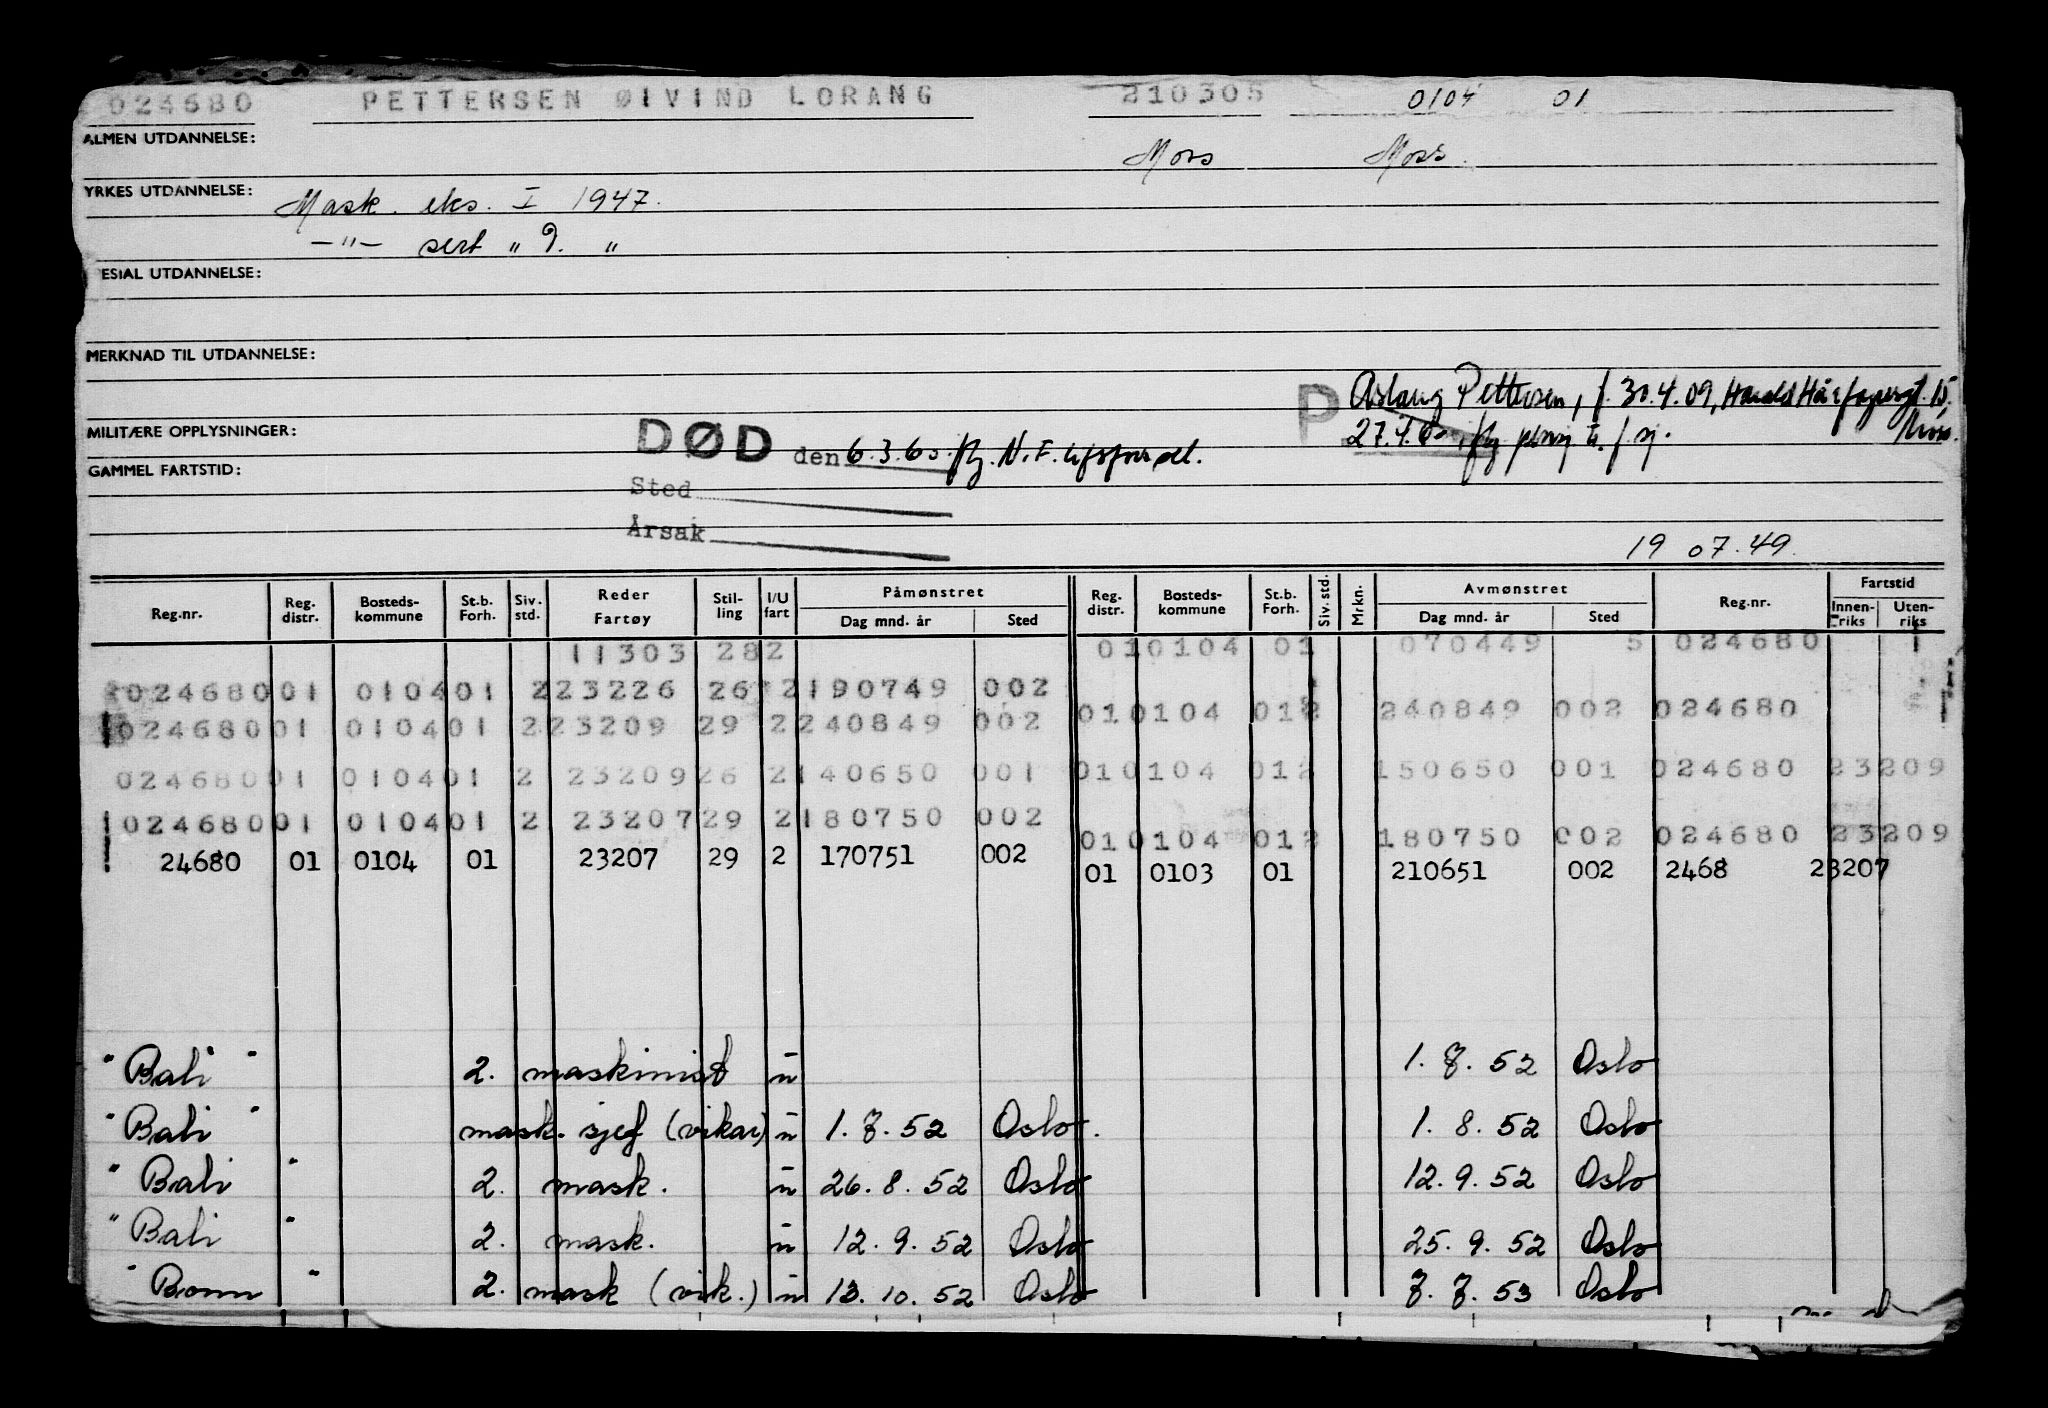 024680 PETTERSEN ØIVIND LORANG 210305 0104 01
ALMEN UTDANNELSE: Moss Moss.
YRKES UTDANNELSE: Mask. eks. I 1947.
—"— sert " "
ESIAL UTDANNELSE:
MERKNAD TIL UTDANNELSE:
P Aslaug Pettersen, f. 30.4.09, Harald Hårfagersgt. 15.
MILITÆRE OPPLYSNINGER: DØD den 6.3.65. flg. N.F.
27.4.
Moss.
GAMMEL FARTSTID:
Sted
Årsak
19 07.49.
Reg.nr. Reg. distr. Bosteds-kommune St.b. Forh. Siv. std. Reder Fartøy Stil-ling I/U fart Påmønstret Dag mnd. år Sted Reg. distr. Bosteds-kommune St.b. Forh. Siv. std. Mrkn. Avmønstret Dag mnd. år Sted Reg.nr. Fartstid Innen-riks Uten-riks
11303 282 010104 01 070449 5 024680 1
02468001 010401 223226 26 2190749 002
010104 012 240849 002 024680
02468001 010401 223209 29 2240849 002
02468001 010401 2 2320926 2140650 001 010104 012 150650 001 024680 23209
02468001 010401 2 2320729 2180750 002
010104 012 180750 002 024680 23209
24680 01 0104 01 23207 29 2 170751 002
01 0103 01 210651 002 2468 23207
"Bali" 2. maskinist u 1.7.52 Oslo
"Bali" mask. sjef (vikar) u 1.7.52 Oslo. 1.8.52 Oslo
"Bali" 2. mask. u 26.8.52 Oslo 12.9.52 Oslo
"Bali" 2. mask. u 12.9.52 Oslo 25.9.52 Oslo
"Bonn" 2. mask (vik.) u 13.10.52 Oslo 7.7.53 Oslo